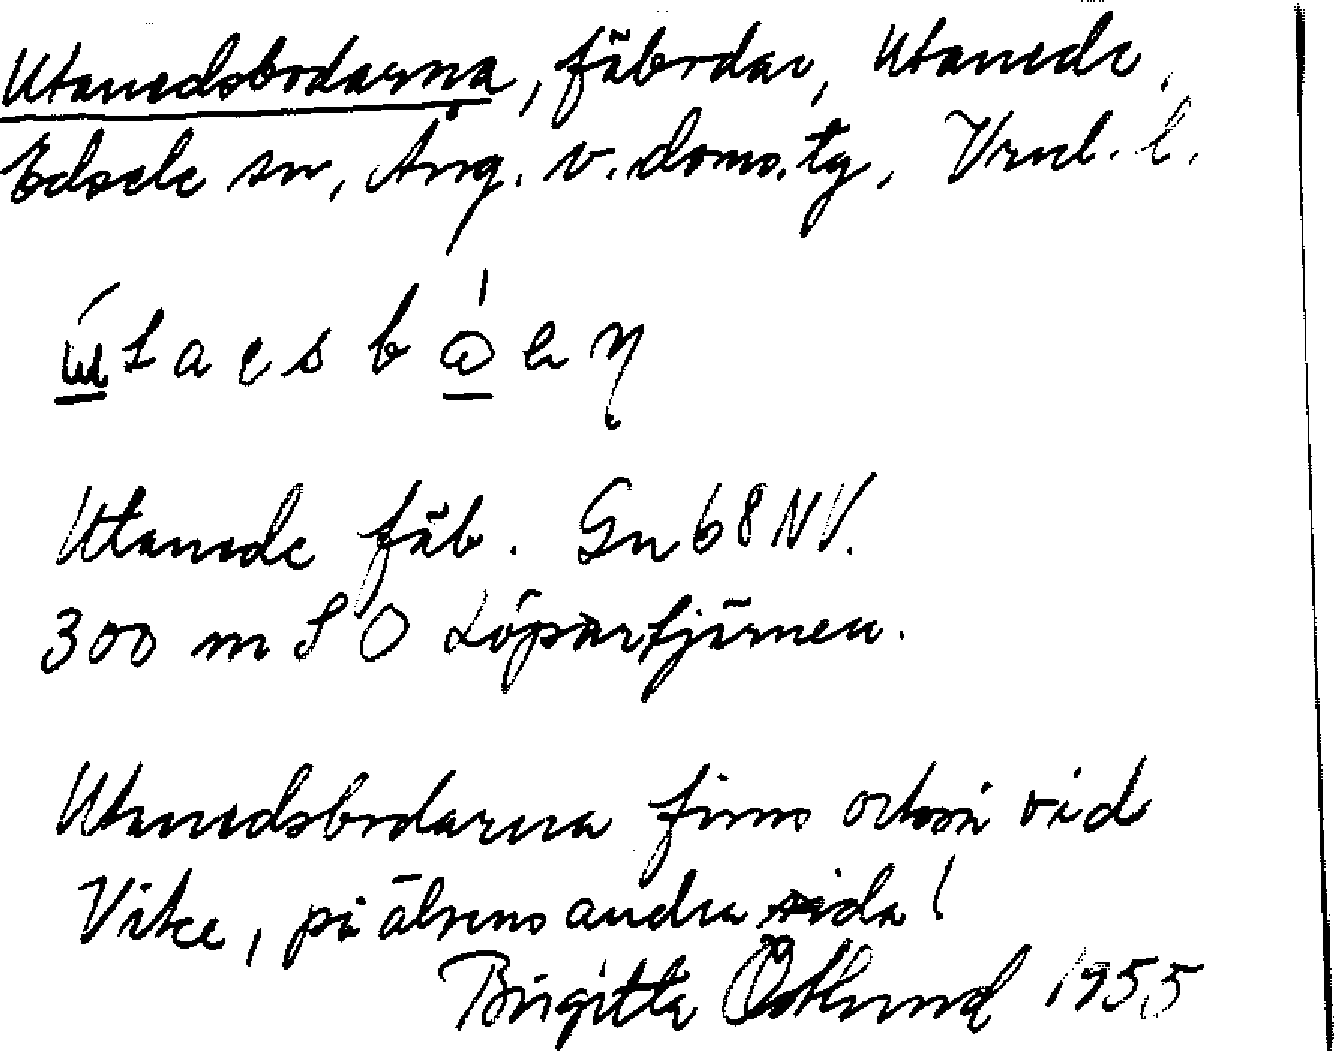 Utanedsbodarna, fäbodar, Utanede,
Edsele sn, Ång. v. doms. tg, Vrnl. l.
Utanede fäb. Gn 68 NV.
300 m SO Löpartjärnen.
Utanedsbodarna finns också vid
Vike, på älvens andra sida!
Birgitta Östlund 1955